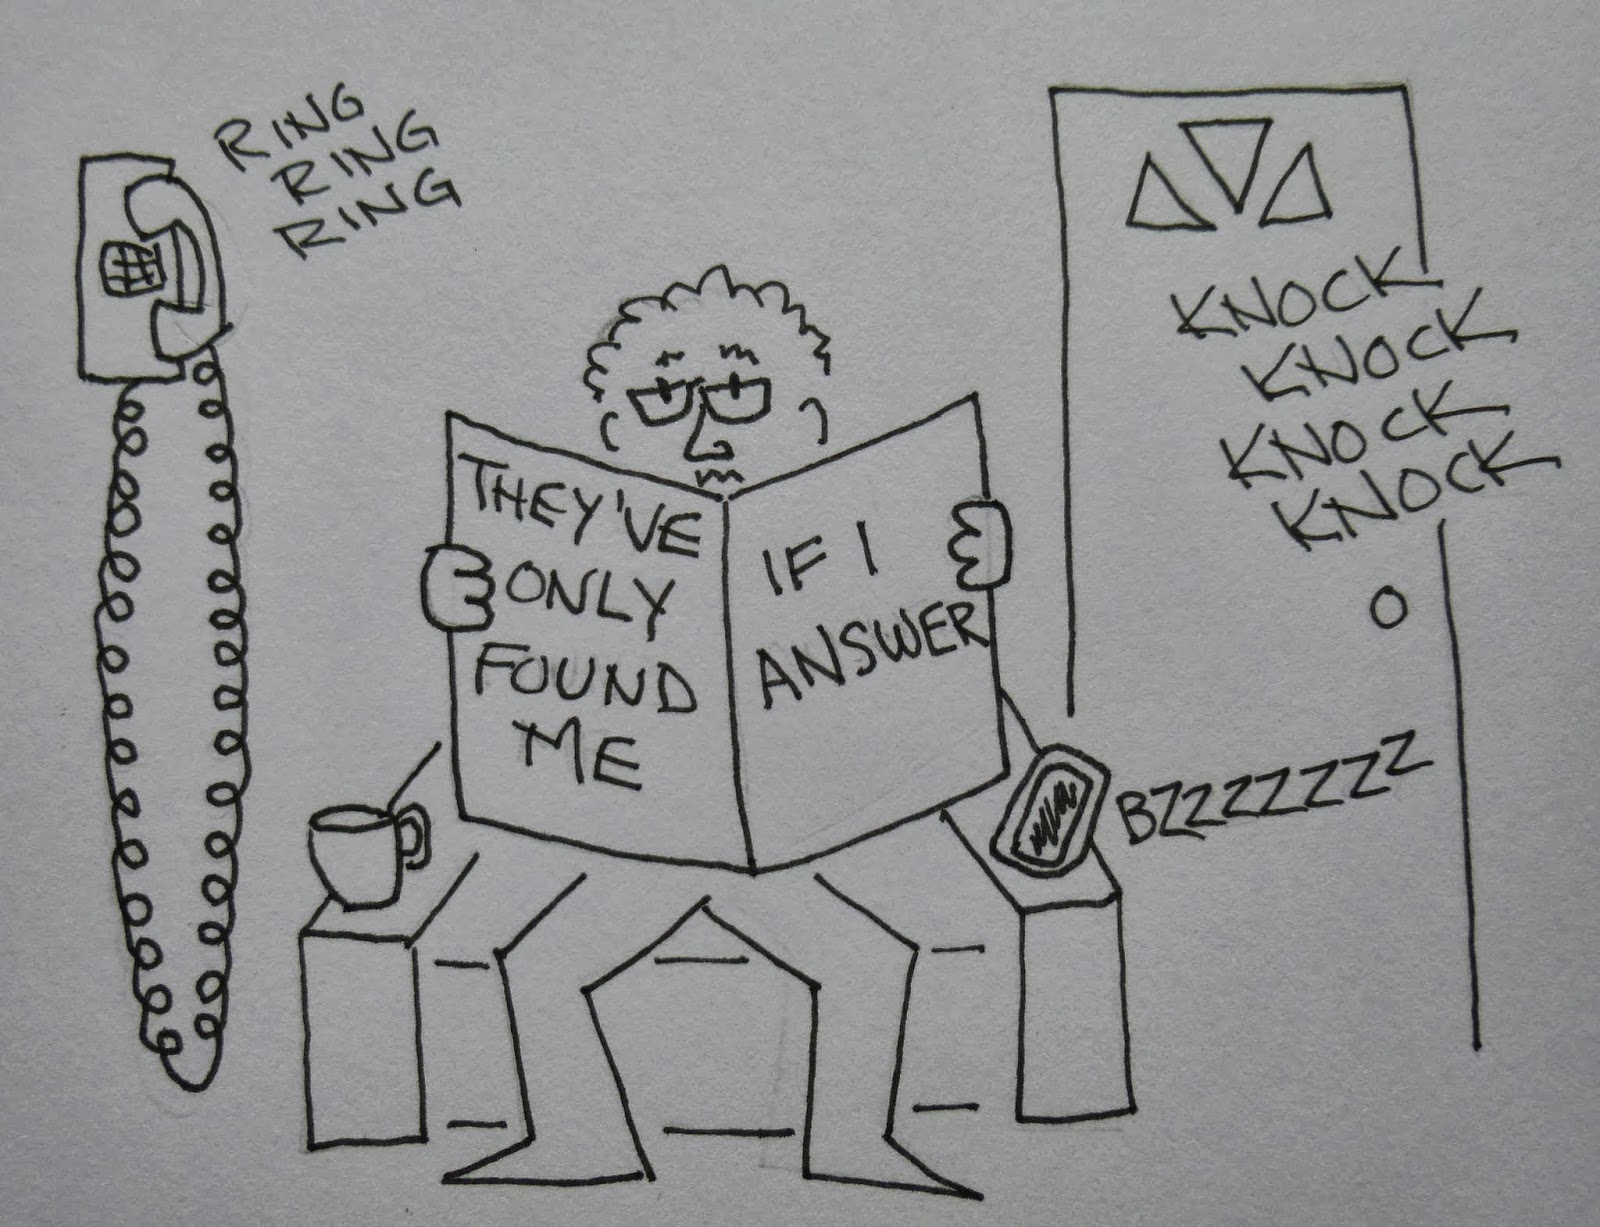 RING
RING
RING
KNOCK
KNOCK
KNOCK
KNOCK
THEY'VE
ONLY
FOUND
ME
IF I
ANSWER
BZZZZZZZ